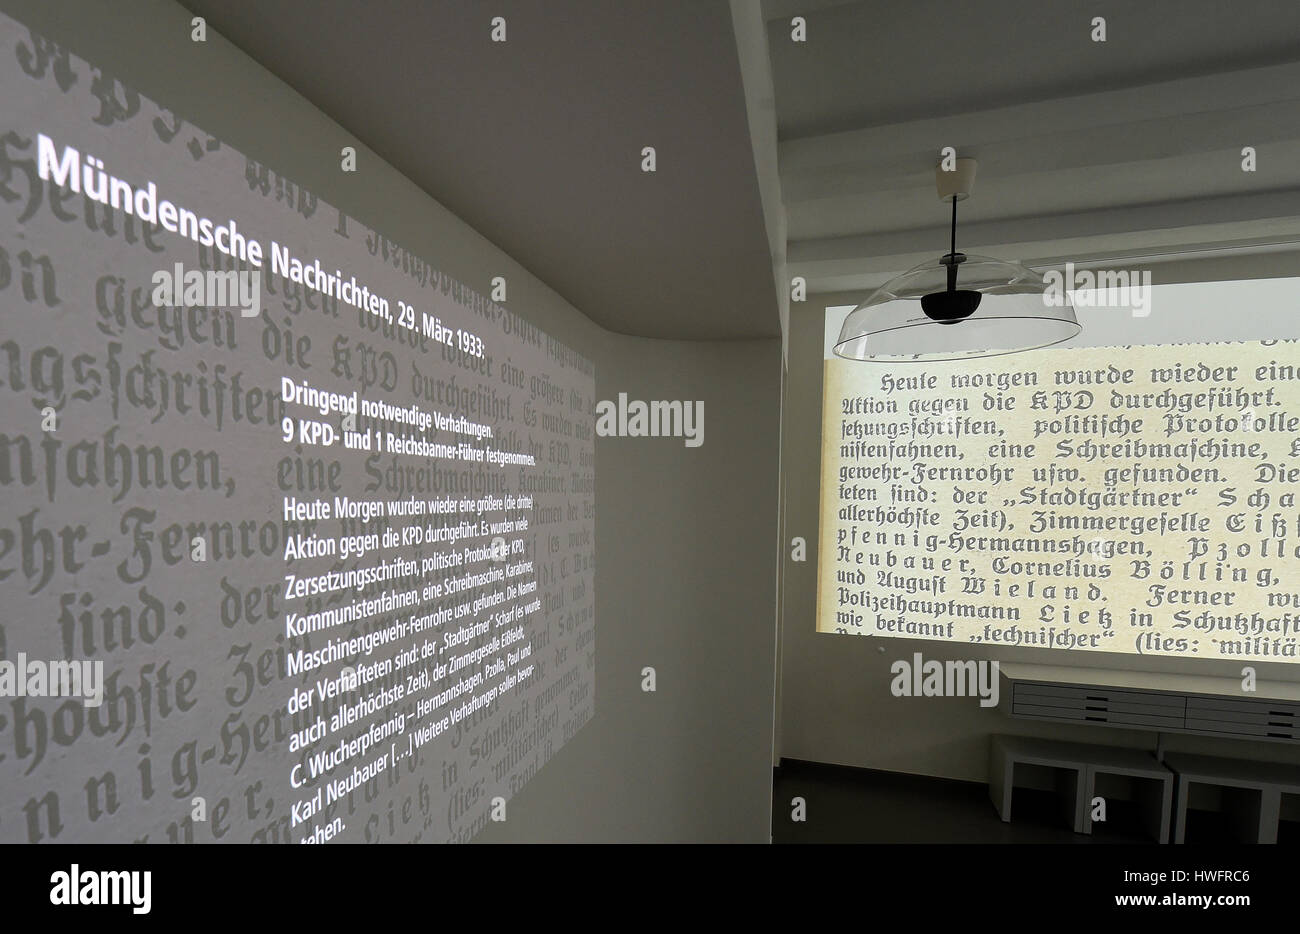 Mündensche Nachrichten, 29. März 1933:
Dringend notwendige Verhaftungen.
9 KPD- und 1 Reichsbanner-Führer festgenommen.
Heute Morgen wurden wieder eine größere (die dritte)
Aktion gegen die KPD durchgeführt. Es wurden viele
Zersetzungsschriften, politische Protokolle der KPD,
Kommunistenfahnen, eine Schreibmaschine, Karabiner,
Maschinengewehr-Fernrohre usw. gefunden. Die Namen
der Verhafteten sind: der „Stadtgärtner" Scharf (es wurde
auch allerhöchste Zeit), der Zimmergeselle Eißfeldt,
C. Wucherpfennig – Hermannshagen, Pzolla, Paul und
Karl Neubauer [...] Weitere Verhaftungen sollen bevor-
stehen.
Heute morgen wurde wieder eine
Aktion gegen die KPD durchgeführt.
setzungsschriften, politische Protokolle
nistenfahnen, eine Schreibmaschine, K
gewehr-Fernrohr usw. gefunden. Die
teten sind: der „Stadtgärtner" Scha
allerhöchste Zeit), Zimmergeselle Eißf
pfennig-Hermannshagen, Pzolla
Neubauer, Cornelius Bölling,
und August Wieland. Ferner wu
Polizeihauptmann Lietz in Schutzhaft
wie bekannt „technischer" (lies: "militär
alamy
alamy
alamy
alamy stock photo
HWFRC6
www.alamy.com